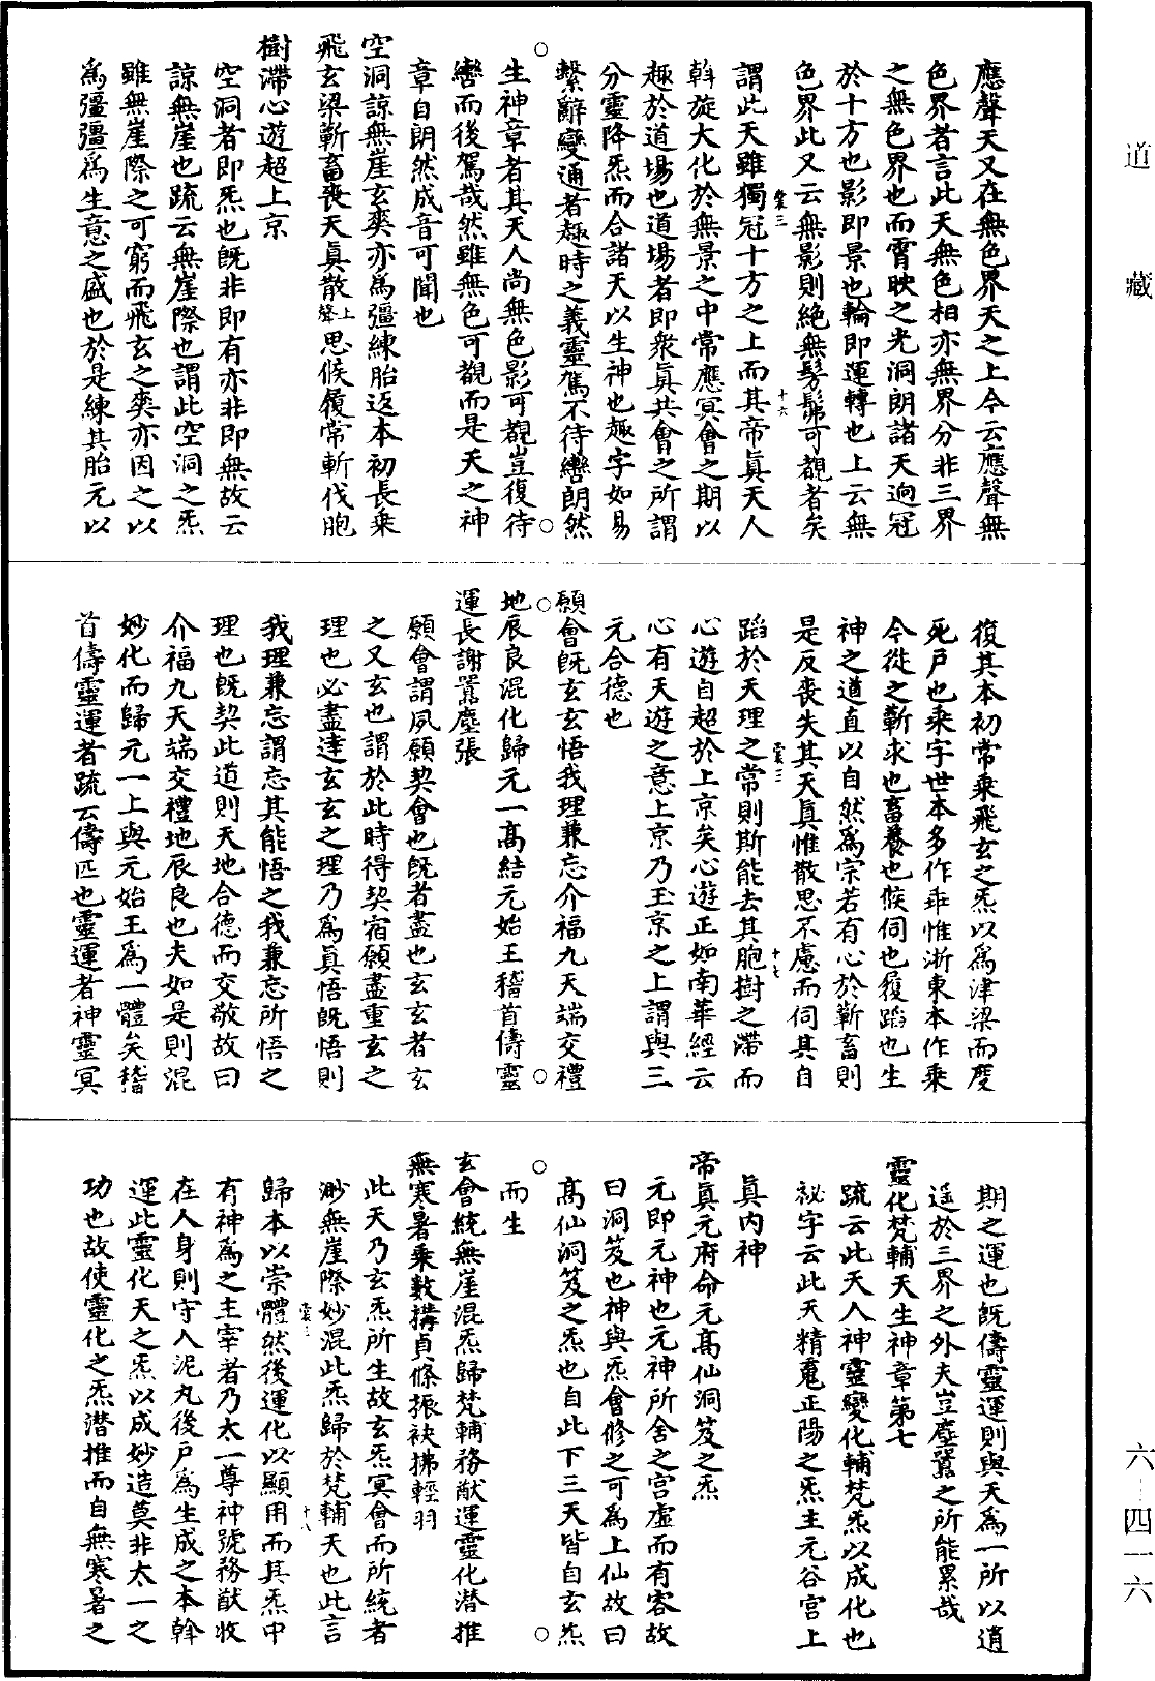 應聲天又在無色界天之上今云應聲無
色界者言此天無色相亦無界分非三界
之無色界也而霄映之光洞朗諸天逈冠
於十方也影即景也輪即運轉也上云無
色界此又云無影則絶無髣髴可覩者矣
裳三
十六
謂此天雖獨冠十方之上而其帝眞天人
斡旋大化於無景之中常應冥會之期以
趣於道場也道場者即衆眞共會之所謂
分靈降炁而合諸天以生神也趣字如易
繫辭變通者趣時之義靈駕不待轡朗然
生神章者其天人尚無色影可覩豈復待
轡而後駕哉然雖無色可觀而是天之神
章自朗然成音可聞也
空洞諒無崖玄爽亦爲彊練胎返本初長乗
飛玄梁蘄畜喪天眞散上聲思候履常斬伐胞
樹滯心遊超上京
空洞者即炁也旣非即有亦非即無故云
諒無崖也疏云無崖際也謂此空洞之炁
雖無崖際之可窮而飛玄之爽亦因之以
爲彊彊爲生意之盛也於是練其胎元以
復其本初常乗飛玄之炁以爲津梁而度
死戶也乗字世本多作乖惟浙東本作乗
今從之蘄求也畜養也候伺也履蹈也生
神之道直以自然爲宗若有心於蘄畜則
是反喪失其天眞惟散思不慮而伺其自
裳三
十七
蹈於天理之常則斯能去其胞樹之滯而
心遊自超於上京矣心遊正如南華經云
心有天遊之意上京乃玉京之上謂與三
元合德也
願會旣玄玄悟我理兼忘介福九天端交禮
地辰良混化歸元一高結元始王稽首儔靈
運長謝囂塵張
願會謂夙願契會也旣者盡也玄玄者玄
之又玄也謂於此時得契宿願盡重玄之
理也必盡達玄玄之理乃爲眞悟旣悟則
我理兼忘謂忘其能悟之我兼忘所悟之
理也旣契此道則天地合德而交敬故曰
介福九天端交禮地辰良也夫如是則混
妙化而歸元一上與元始王爲一體矣稽
首儔靈運者疏云儔匹也靈運者神靈冥
期之運也旣儔靈運則與天爲一所以逍
遥於三界之外夫豈塵囂之所能累哉
靈化梵輔天生神章第七
疏云此天人神靈變化輔梵炁以成化也
祕字云此天精䰟正陽之炁主元谷宫上
眞内神
帝眞元府命元高仙洞笈之炁
元即元神也元神所舍之宫虛而有容故
曰洞笈也神與炁會修之可爲上仙故曰
高仙洞笈之炁也自此下三天皆自玄炁
而生
玄會統無崖混炁歸梵輔務猷運靈化潜推
無寒暑乗數構貞條振袂拂輕羽
此天乃玄炁所生故玄炁冥會而所統者
渺無崖際妙混此炁歸於梵輔天也此言
裳三
十八
歸本以崇體然後運化以顯用而其炁中
有神爲之主宰者乃太一尊神號務猷收
在人身則守入泥丸後戶爲生成之本斡
運此靈化天之炁以成妙造莫非太一之
功也故使靈化之炁潜推而自無寒暑之
道藏
六—四一六